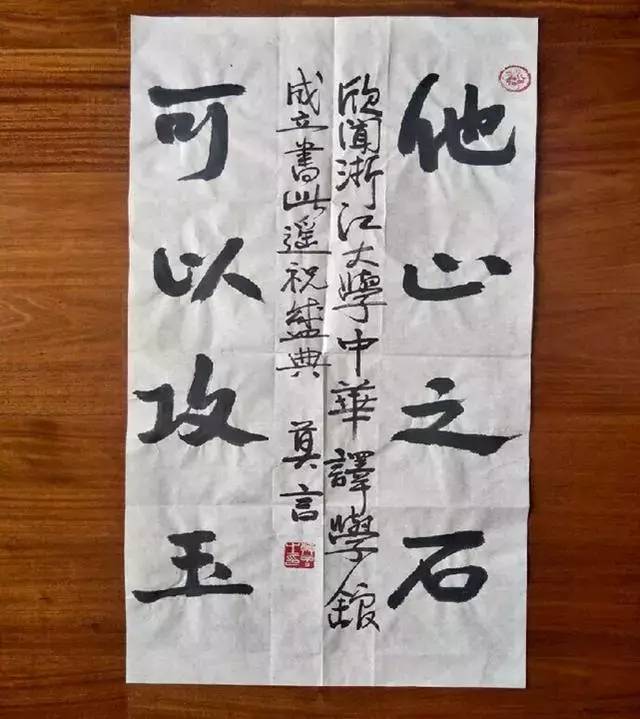 他山之石
欣闻浙江大學中華譯學館
成立書此遥祝盛典 莫言
可以攻玉